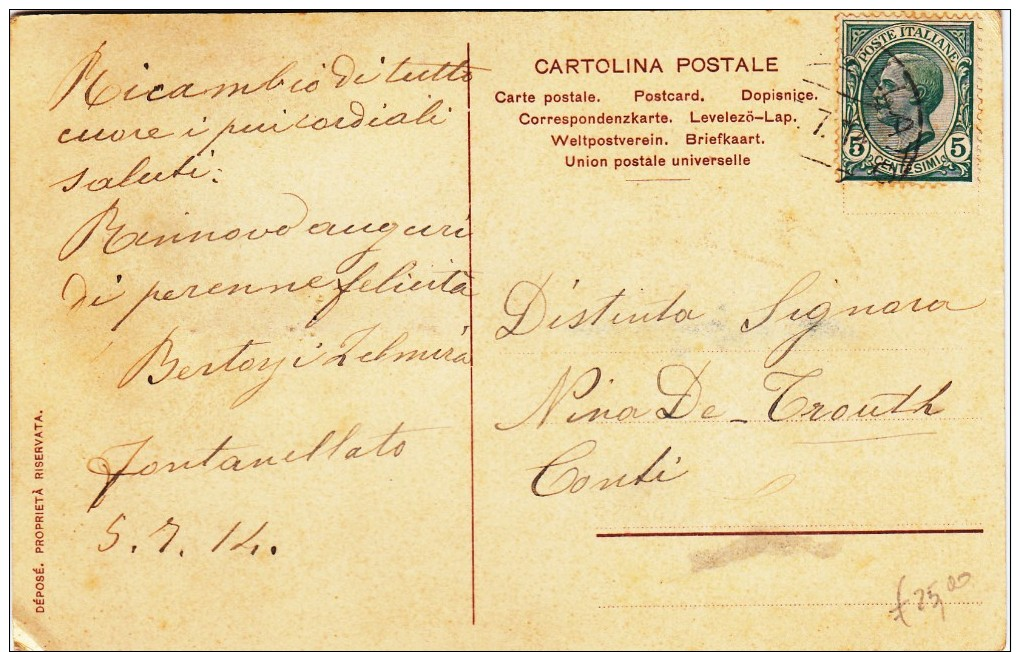 Ricambio di tutto
cuore i piu cordiali
saluti.
Rinnovo auguri
di perenne felicità
Bertozzi Zelmira
Fontanellato
5.7.14.
DÉPOSÉ. PROPRIETÀ RISERVATA.
CARTOLINA POSTALE
Carte postale. Postcard. Dopisnice.
Correspondenzkarte. Levelezö-Lap.
Weltpostverein. Briefkaart.
Union postale universelle
POSTE ITALIANE
5 CENTESIMI 5
Distinta Signora
Nina De-Trouth
Conti
£ 25,00